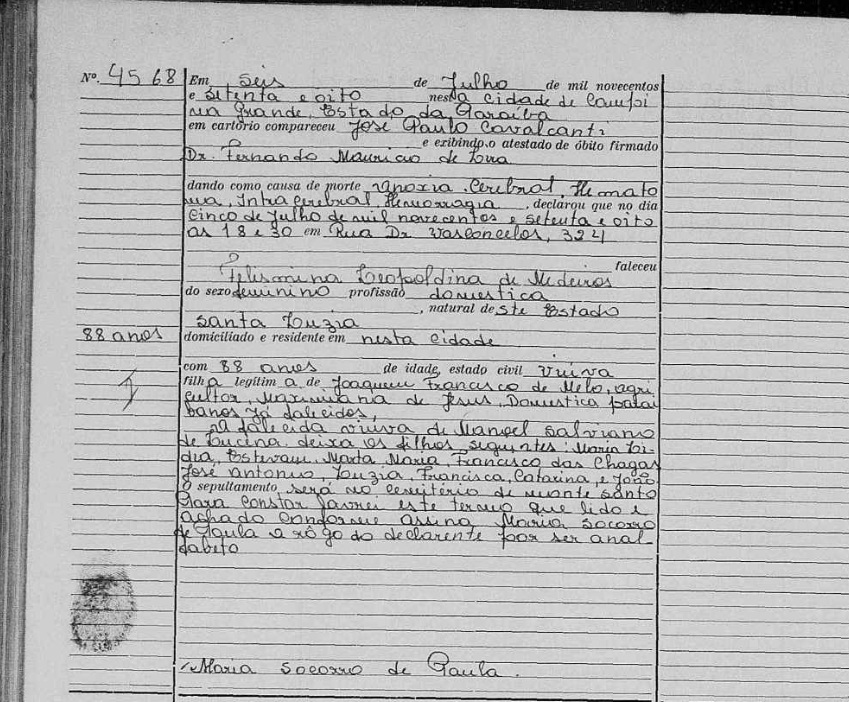 Nº. 4568
Em seis de Julho de mil novecentos
e setenta e oito nesta cidade de Campi
na Grande, Estado da Paraíba
em cartório compareceu José Paulo Cavalcanti
e exibindo o atestado de óbito firmado
Dr. Fernando Mauricio de
dando como causa de morte Anoxia Cerebral, Hemato
ma, Intra cerebral, Hemorragia, declarou que no dia
Cinco de Julho de mil novecentos e setenta e oito
as 18 e 30 em Rua Dr Vasconcelos, 324
faleceu
Felismina Leopoldina de Medeiros
do sexo feminino profissão domestica
, natural deste Estado
Santa Luzia
88 anos
domiciliado e residente em nesta cidade
com 88 anos de idade, estado civil Viuva
filha legitima de Joaquem Francisco de Melo, agri
cultor, Maximiana de Jesus, Domestica parai
banos já falecidos,
A falecida viuva de Manoel Salviano
de Lucena deixa os filhos seguintes: Maria Li
dia, Estevam, Marta Maria, Francisco das Chagas
José Antonio, Luzia, Francisca, Catarina, e João
O sepultamento será no cemitério de monte santo
Para constar lavrei este termo que lido e
achado conforme assina Maria Socorro
de Paula a rôgo do declarente por ser anal
fabeto
Maria Socorro de Paula.